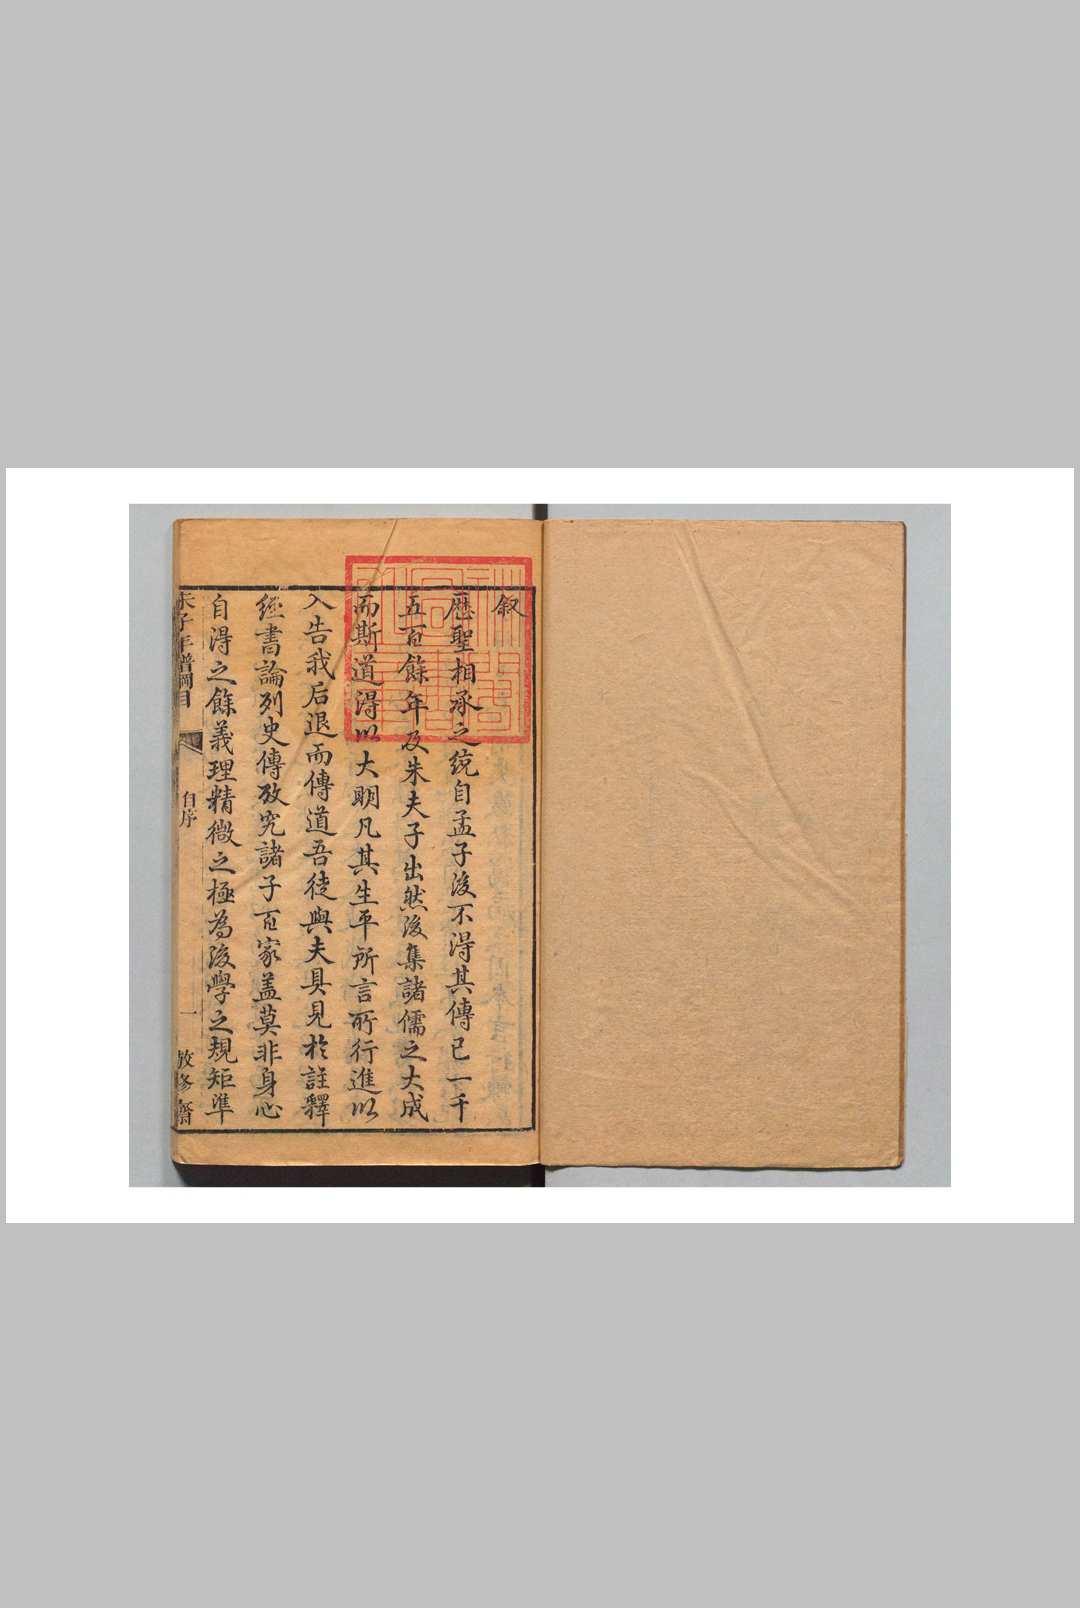 叙
歷聖相承之統自孟子後不得其傳已一千
五百餘年及朱夫子出然後集諸儒之大成
而斯道得以大明凡其生平所言所行進以
入告我后退而傳道吾徒與夫具見於註釋
經書論列史傳攷究諸子百家盖莫非身心
自得之餘義理精微之極為後學之規矩準
朱子年譜綱目
自序
一
敬修齋